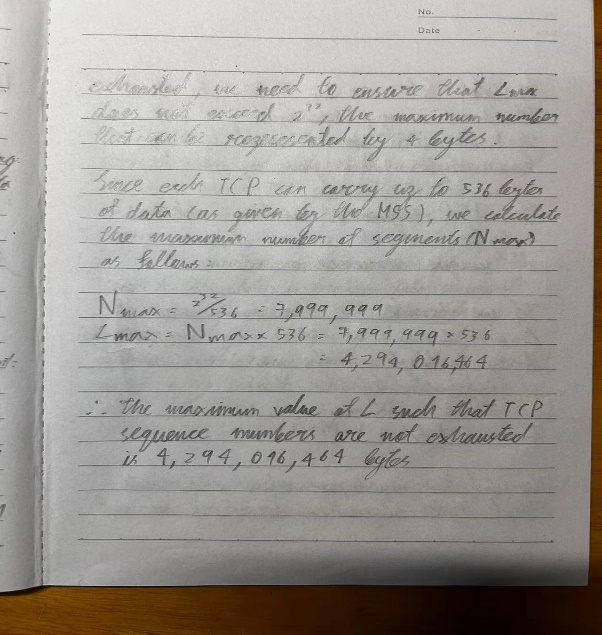 No.
Date
exhausted, we need to ensure that Lmax
does not exceed 2³², the maximum number
that can be represented by 4 bytes.
Since each TCP can carry up to 536 bytes
of data (as given by the MSS), we calculate
the maximum number of segments (Nmax)
as follows:
Nmax = 2³²/536 = 7,999,999
Lmax = Nmax x 536 = 7,999,999 x 536
= 4,294,016,464
∴ the maximum value of L such that TCP
sequence numbers are not exhausted
is 4,294,016,464 bytes